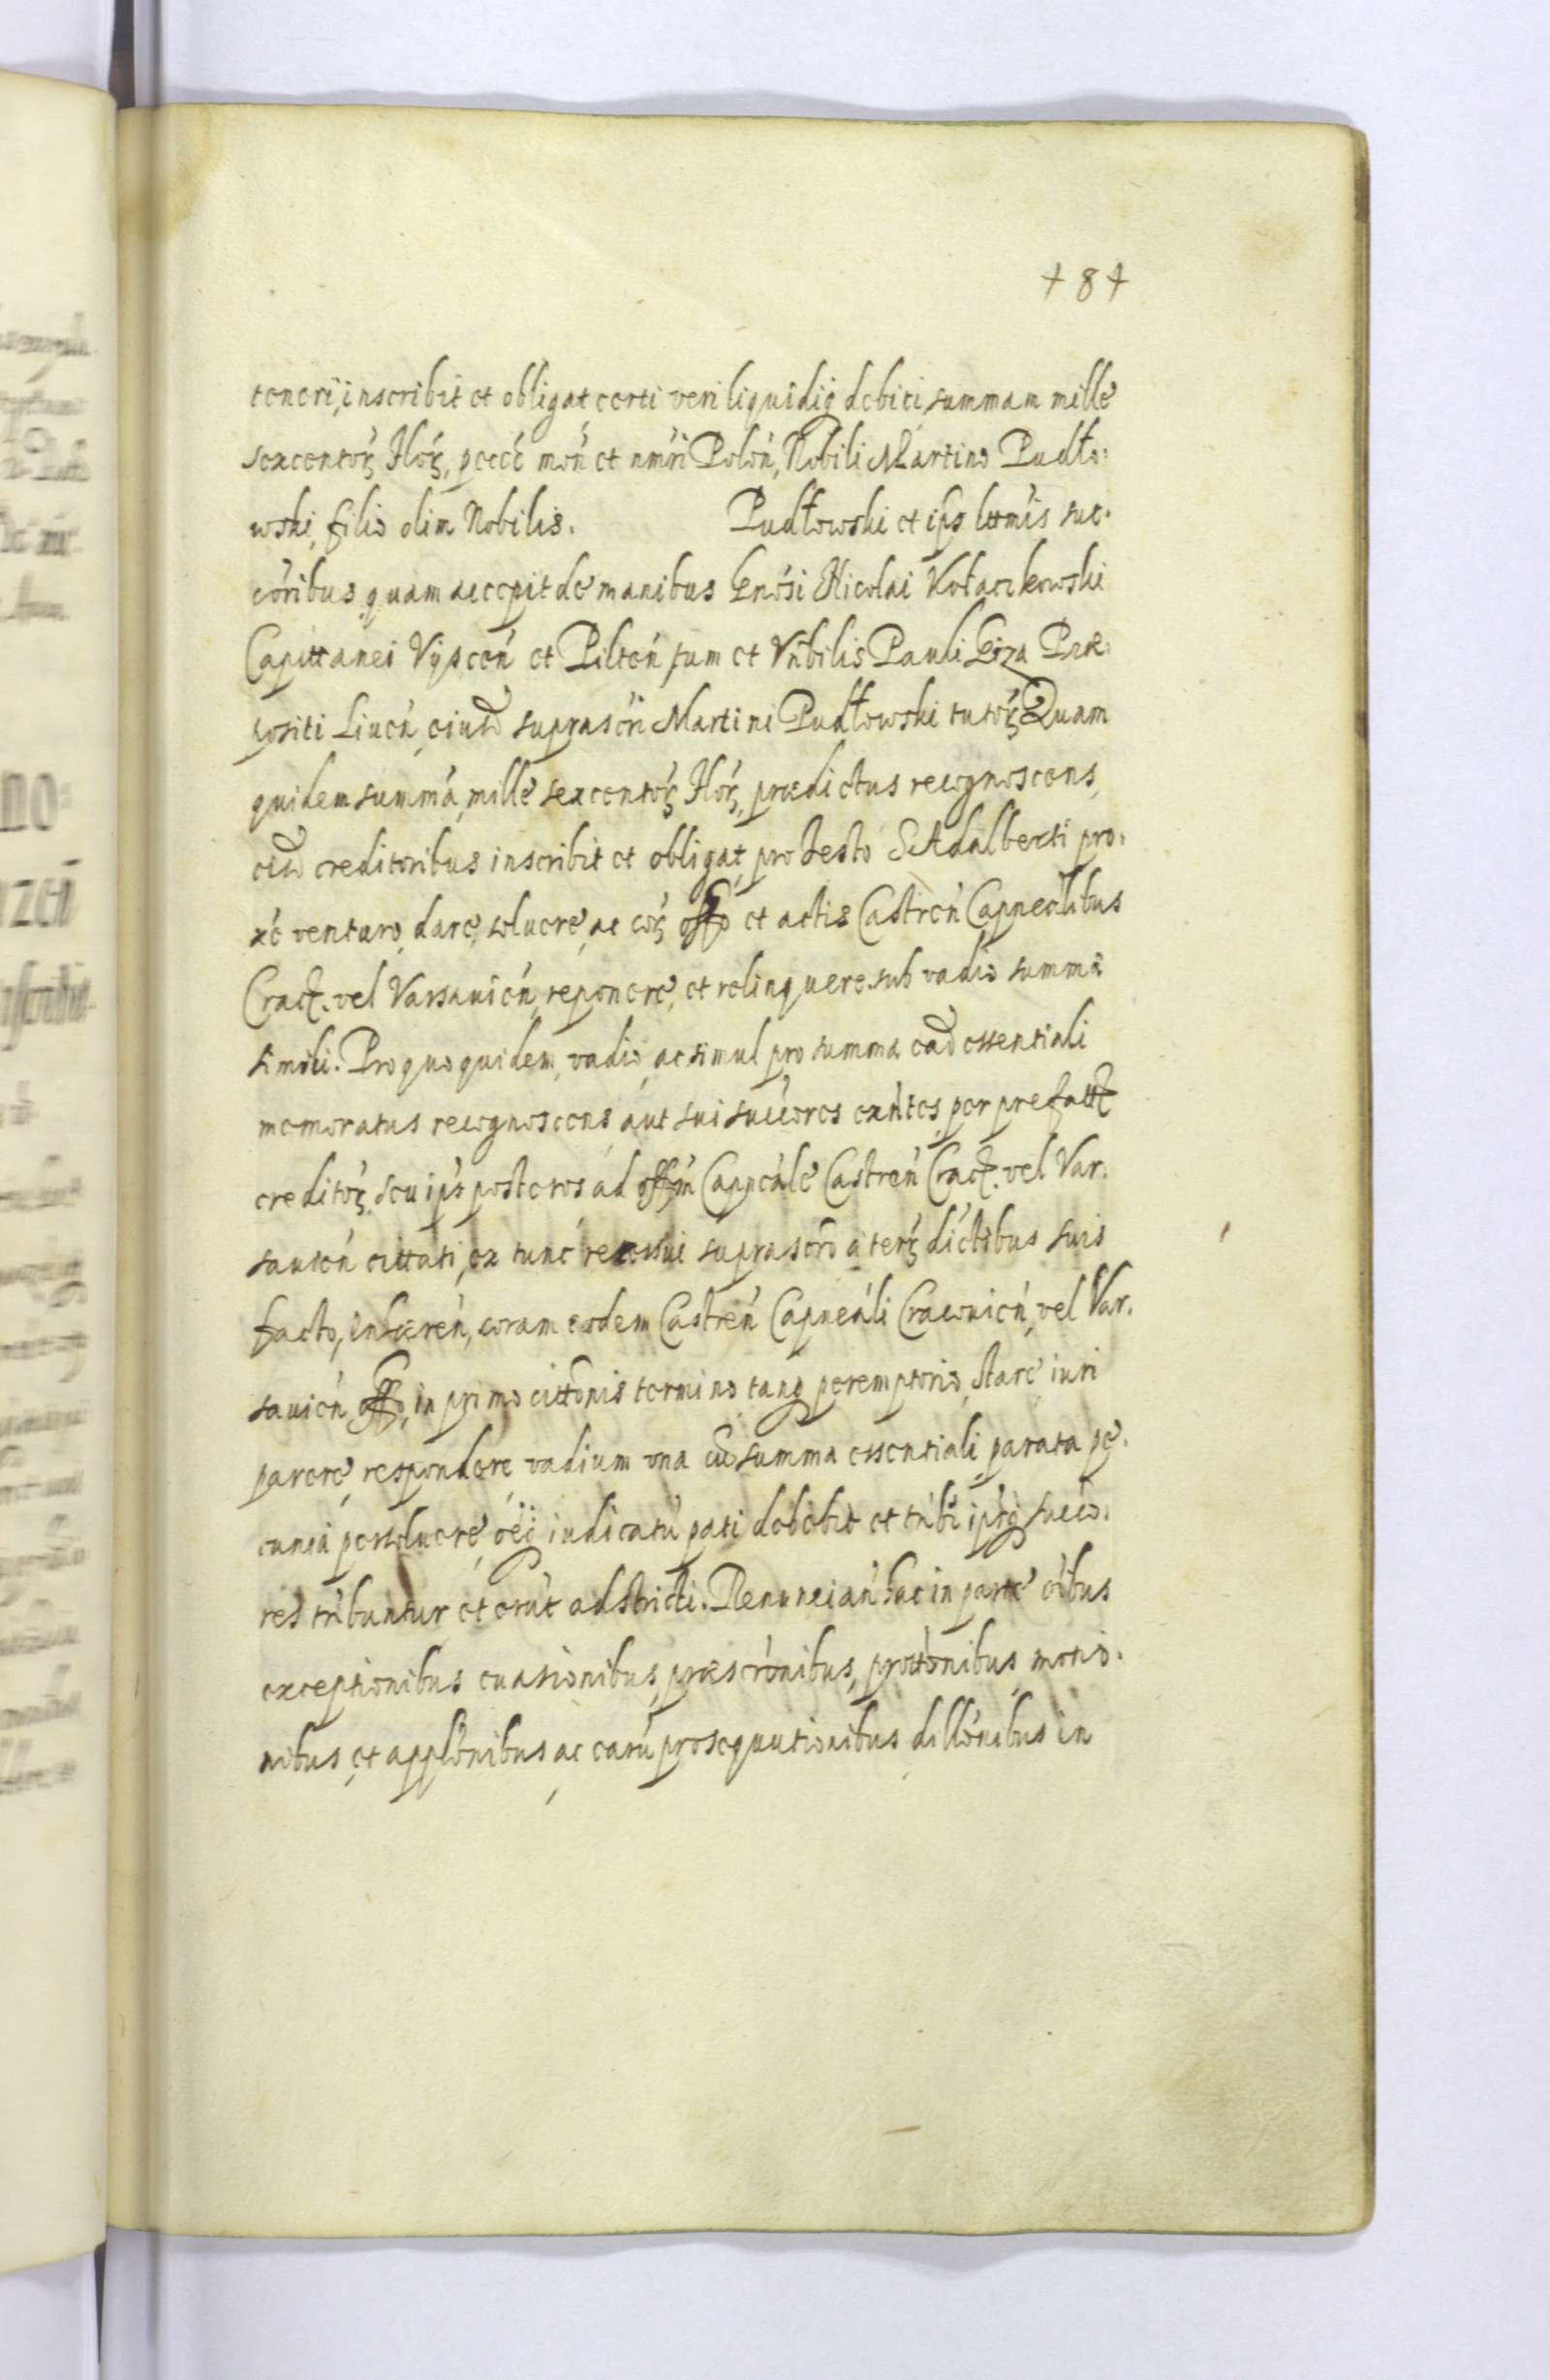 + 8 +
teneri, inscribit et obligat certi veri liquidiq debiti, summam mille
sexcentoꝝ Floꝝ, pccĕ moń et nmŕi Poloń, Nobili Martino Pudło:
wski, filio olim Nobilis. Pudłowski et ips lttmis suc.
córibus, quam accepit de manibus Gnósi Nicolai Kołaczkowski
Capittanei Vyscen et Pilteń, tum et Vńbilis Pauli Giza Præ:
positi Liuén, eiusd suprascri Martini Pudłowski tutoꝝ. Quam
quidem summá, mille sexcentoꝝ Floꝝ, prædictus recognoscens,
eisd creditoribus inscribit et obligat, pro festo S. Adalberti pro.
xé venturo, dare, soluere, ac coꝝ offo et actis Castreń Capnealibus
Crac. vel Varsauień, reponere, et relinquere. sub vadio summa
simili. Pro quo quidem, vadio, ac simul pro summa ead essentiali
memoratus recognoscens, aut sui succores, exńtes, per prefatt
creditoꝝ, seu ips posteros ád offm Capneále Castreń Crac. vel Var.
sauień cittati, ex tunc recessui suprascro a terꝝ dictibus suis
facto, inhæreń, coram eodem Castreń Capneáli Cracouień, vel Var.
sauień offo, in primo cittonis termino tanq peremptorio, stare iuri
parere, respondere, vadium vna cu summa essentiali, parata pe.
cunia persoluere, oēq iudicatu pati debebit et tńbr ipiq succo.
res tńbuntur et erút adstricti. Renuncian hac in parte oibus
exceptionibus euasionibus, præscrónibus, prottónibus, motio.
nibus, et applónibus ac earú prosequutionibus, dillónibus in